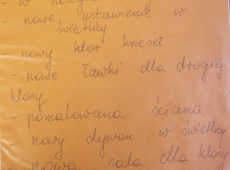 w nowym
- nowe ustawienie w
świetlicy
- nowy kolor krzeseł
- nowe ławki dla drugiej
klasy
- pomalowana ściana
- nowy dywan w świetlicy
nowa sala dla klasy